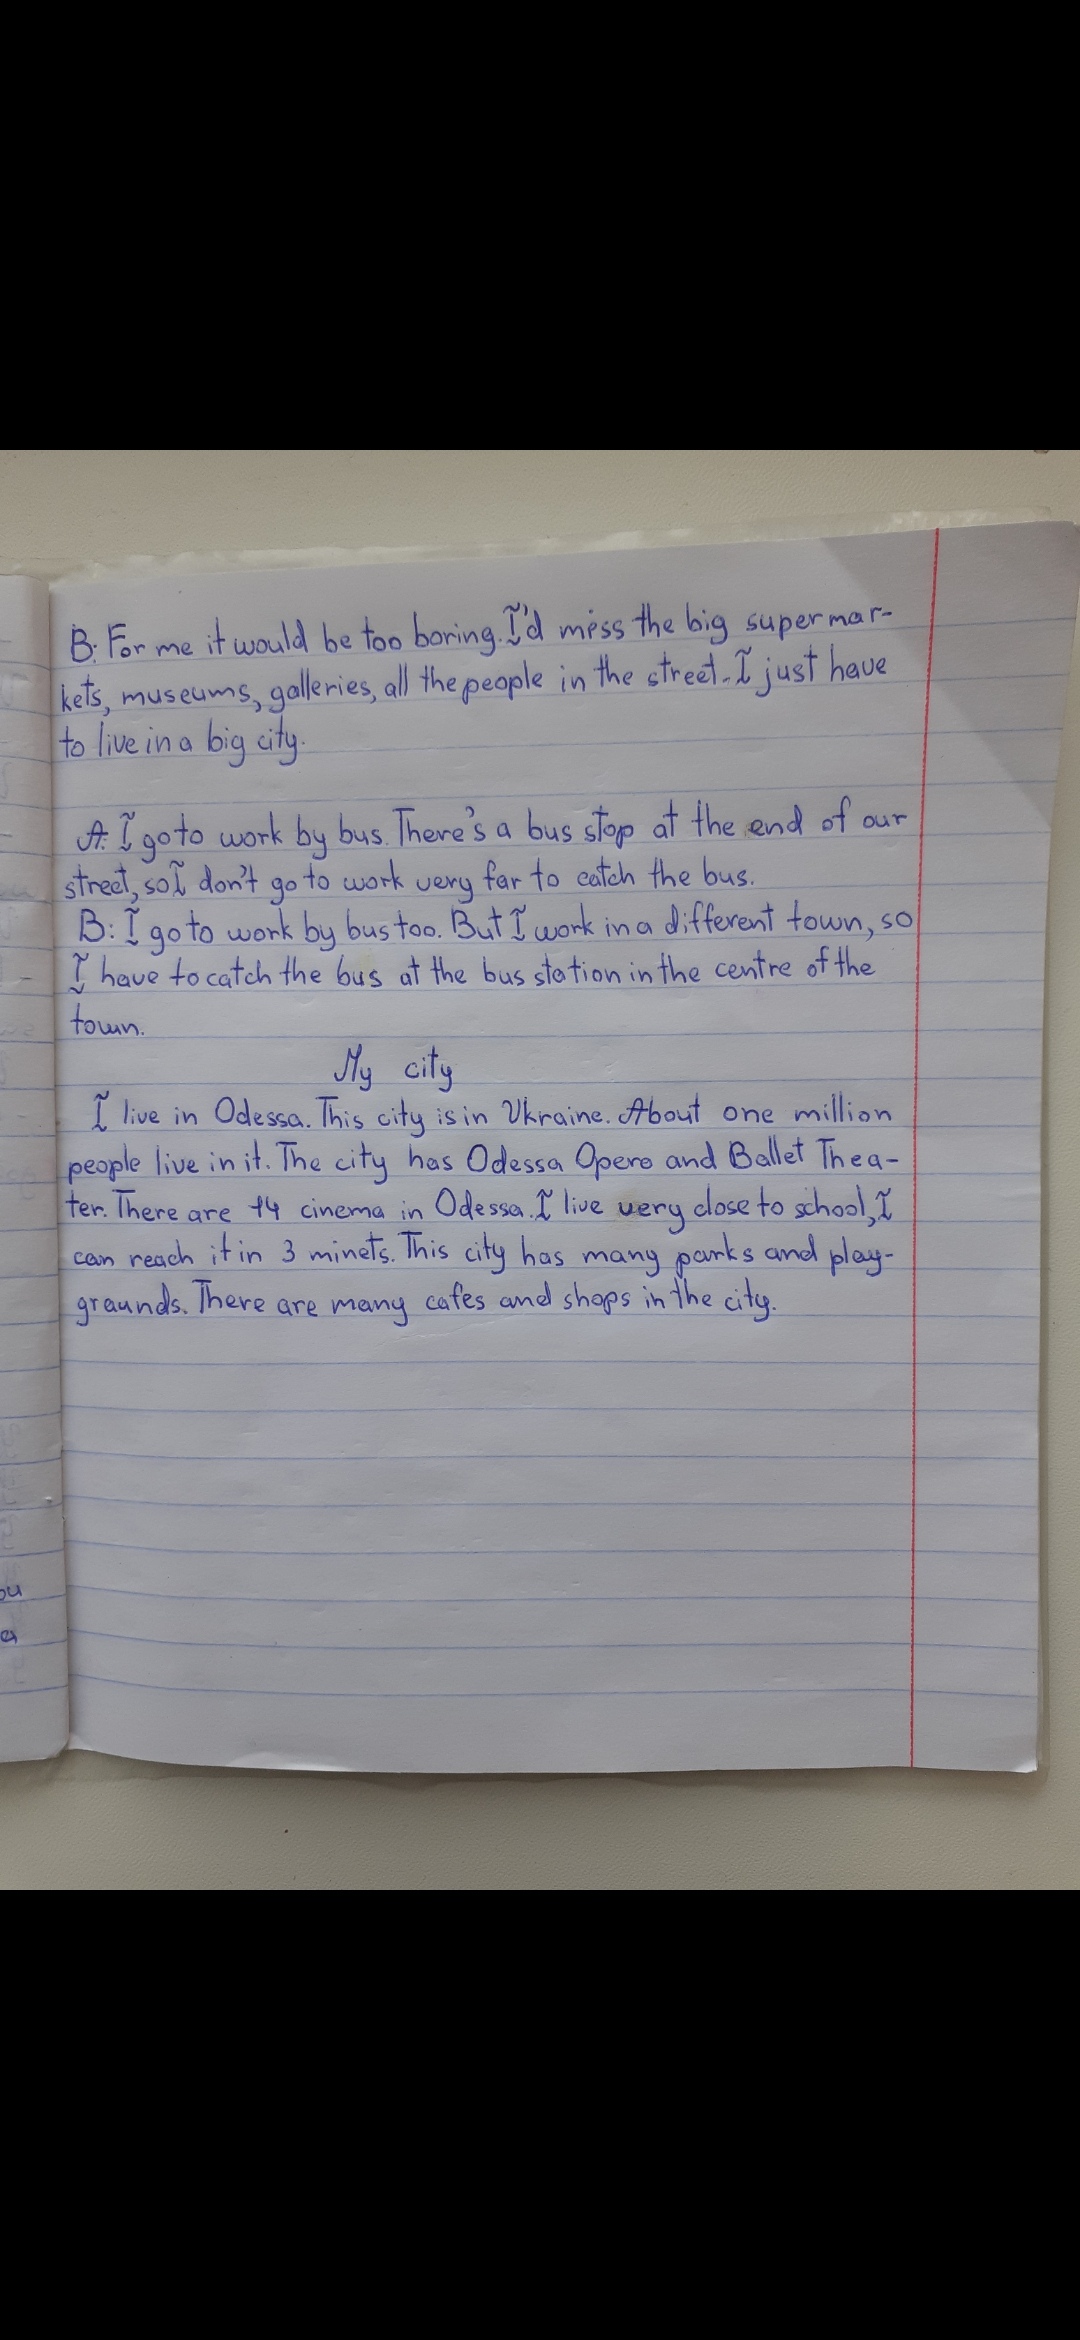 B: For me it would be too boring. I'd miss the big supermar-
kets, museums, galleries, all the people in the street. I just have
to live in a big city.
A: I go to work by bus. There's a bus stop at the end of our
street, so I don't go to work very far to catch the bus.
B: I go to work by bus too. But I work in a different town, so
I have to catch the bus at the bus station in the centre of the
town.
My city
I live in Odessa. This city is in Ukraine. About one million
people live in it. The city has Odessa Opera and Ballet Thea-
ter. There are 14 cinema in Odessa. I live very close to school, I
can reach it in 3 minets. This city has many parks and play-
graunds. There are many cafes and shops in the city.